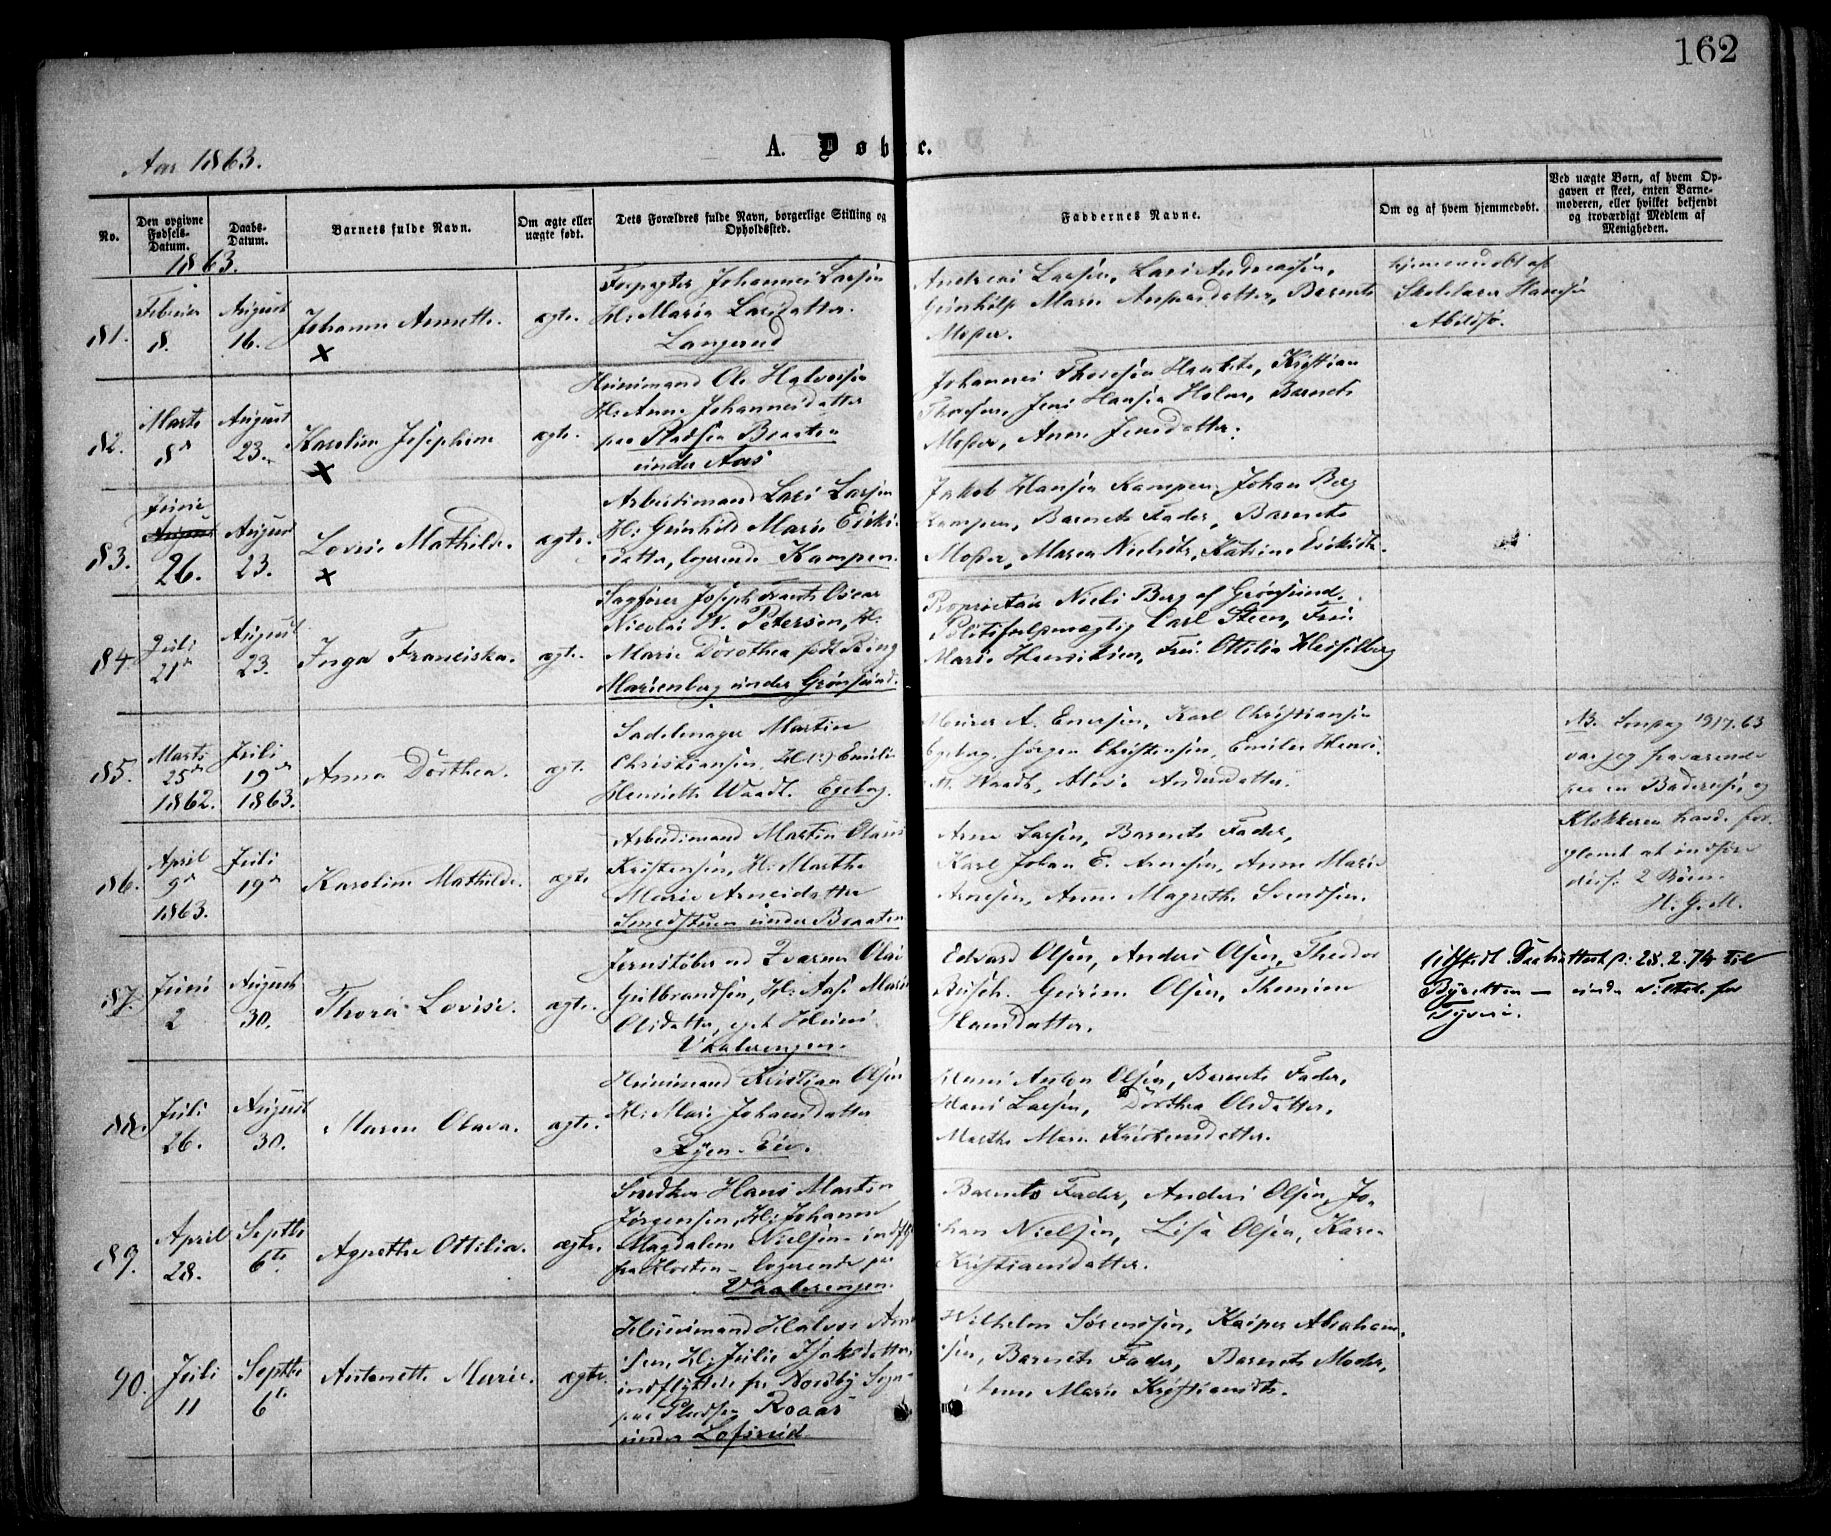 162
Aar 1863.
A. Døbte.
No.
Den opgivne Fødsels-Datum.
Daabs-Datum.
Barnets fulde Navn.
Om ægte eller uægte født.
Dets Forældres fulde Navn, borgerlige Stilling og Opholdssted.
Faddernes Navne.
Om og af hvem hjemmedøbt.
Ved uægte Børn, af hvem Opgaven er skeet, enten Barnemoderen, eller hvilket bekjendt og troværdigt Medlem af Menigheden.
1863.
81.
Februar
8.
August
16.
Johanne Annette.
x
ægte.
Forpagter Johannes Larsen
H: Maria Larsdatter.
Langerud
Andreas Larsen, Lars Andreasen,
Marie Andersdatter, Barnets
Moder.
hjemmedøbt af
Skolelærer Hansen
Abildsø.
82.
Marts
8de
August
23.
Karoline Josephine
x
ægte.
Huusmand Ole Halvorsen
H: Anne Johannesdatter
paa Pladsen Braaten
under Aas
Johannes Thoresen Kristian
Thoresen, Jens Hansen Holm, Barnets
Moder, Anne Jensdatter.
83.
Juni
August
26.
August
23.
Lovise Mathilde.
x
ægte.
Arbeidsmand Lars Larsen
H: Gunhild Marie Eriks-
datter, logerende Kampen.
Jakob Hansen Kampen, Johan Berg
Kampen, Barnets Fader, Barnets
Moder, Maren Nielsdtr, Katrine Eriksdtr.
84.
Juli
21de
August
23.
Inga Franciska.
ægte.
Sagfører Joseph Frants Oscar
Nicolai W. Petersen, H:
Marie Dorothea født Ring
Marienberg under Grønsund.
Proprietær Niels Berg af Grønsund.
Politifuldmægtig Carl Steen, Fru
Marie Henriksen, Frk: Ottilia Heiselberg
85.
Marts
25de
1862.
Juli
19de
1863.
Anna Dorthea.
ægte.
Sadelmager Martin
Christiansen, H: Emilie
Henriette Waadt. Egeberg.
Murer A. Enersen, Karl Christiansen
Egeberg, Jørgen Christensen, Emilie Henri.
M. Waadt, Andersdatter.
NB. Søndag 19/7.63
var jeg fraværende
paa en Badereise, og
Klokkeren havde for-
glemt at indføre
disse 2 Børn.
H. G. M.
86.
April
9de
1863.
Juli
19de
Karoline Mathilde.
ægte
Arbeidsmand Martin Olaus
Kristensen, H: Marthe
Marie Arnesdatter
Smedstuen under Braaten
Arne Larsen, Barnets Fader,
Karl Johan E. Arnesen, Anne Marie
Arnesen, Anne Magrethe Svendsen.
87.
Juni
2
August
30.
Thora Lovise.
ægte.
Jernstøber ved Kværner Olai
Gulbrandsen, H: Aase Marie
Olsdatter, eget Huus
Vaalerengen.
Edvard Olsen, Anders Olsen, Theodor
Busch. Gurine Olsen, Thomine
Hansdatter.
Udstedt Daabsattest p: 28.2.74 til
Byretten — under Tiltale for
Tyveri.
88.
Juli
26.
August
30.
Maren Olava.
ægte.
Huusmand Kristian Olsen
H: Mari Johansdatter
Ryen-Eie.
Hans Anton Olsen, Barnets Fader,
Hans Larsen, Dorthea Olsdatter,
Marthe Marie Kristensdatter.
89.
April
28.
Septbr
6te
Agnethe Ottilia.
ægte.
Snedker Hans Martin
Jørgensen, H: Johanne
Magdalene Nielsen - indfl.
fra Horten - logerende paa
Vaalerengen.
Barnets Fader, Anders Olsen, Jo-
han Nielsen, Lisa Olsen, Karen
Kristiansdatter.
90.
Juli
11
Septbr
6te
Antonette Marie.
ægte.
Huusmand Halvor
sen, H: Julie Isaksdatter
indflyttede fra Nordby Sogn
paa Pladsen Roaas
under Lofsrud
Wilhelm Sørensen, Kasper Abraham-
sen, Barnets Fader, Barnets Moder,
Anne Marie Kristiansdtr.